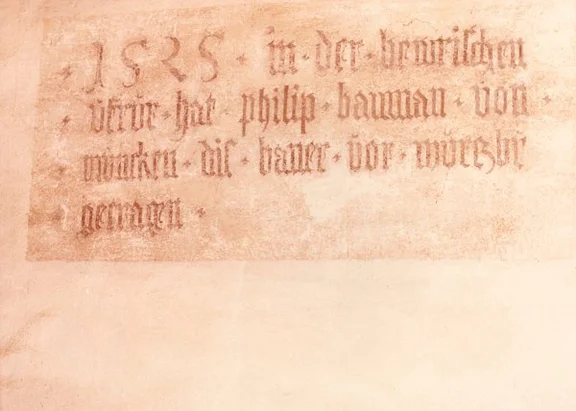 1525 · in · der · bewrischen
vfrür · hat · philip · bauman · von ·
müncken · dis · baner · vor · würtzbr
getragen ·